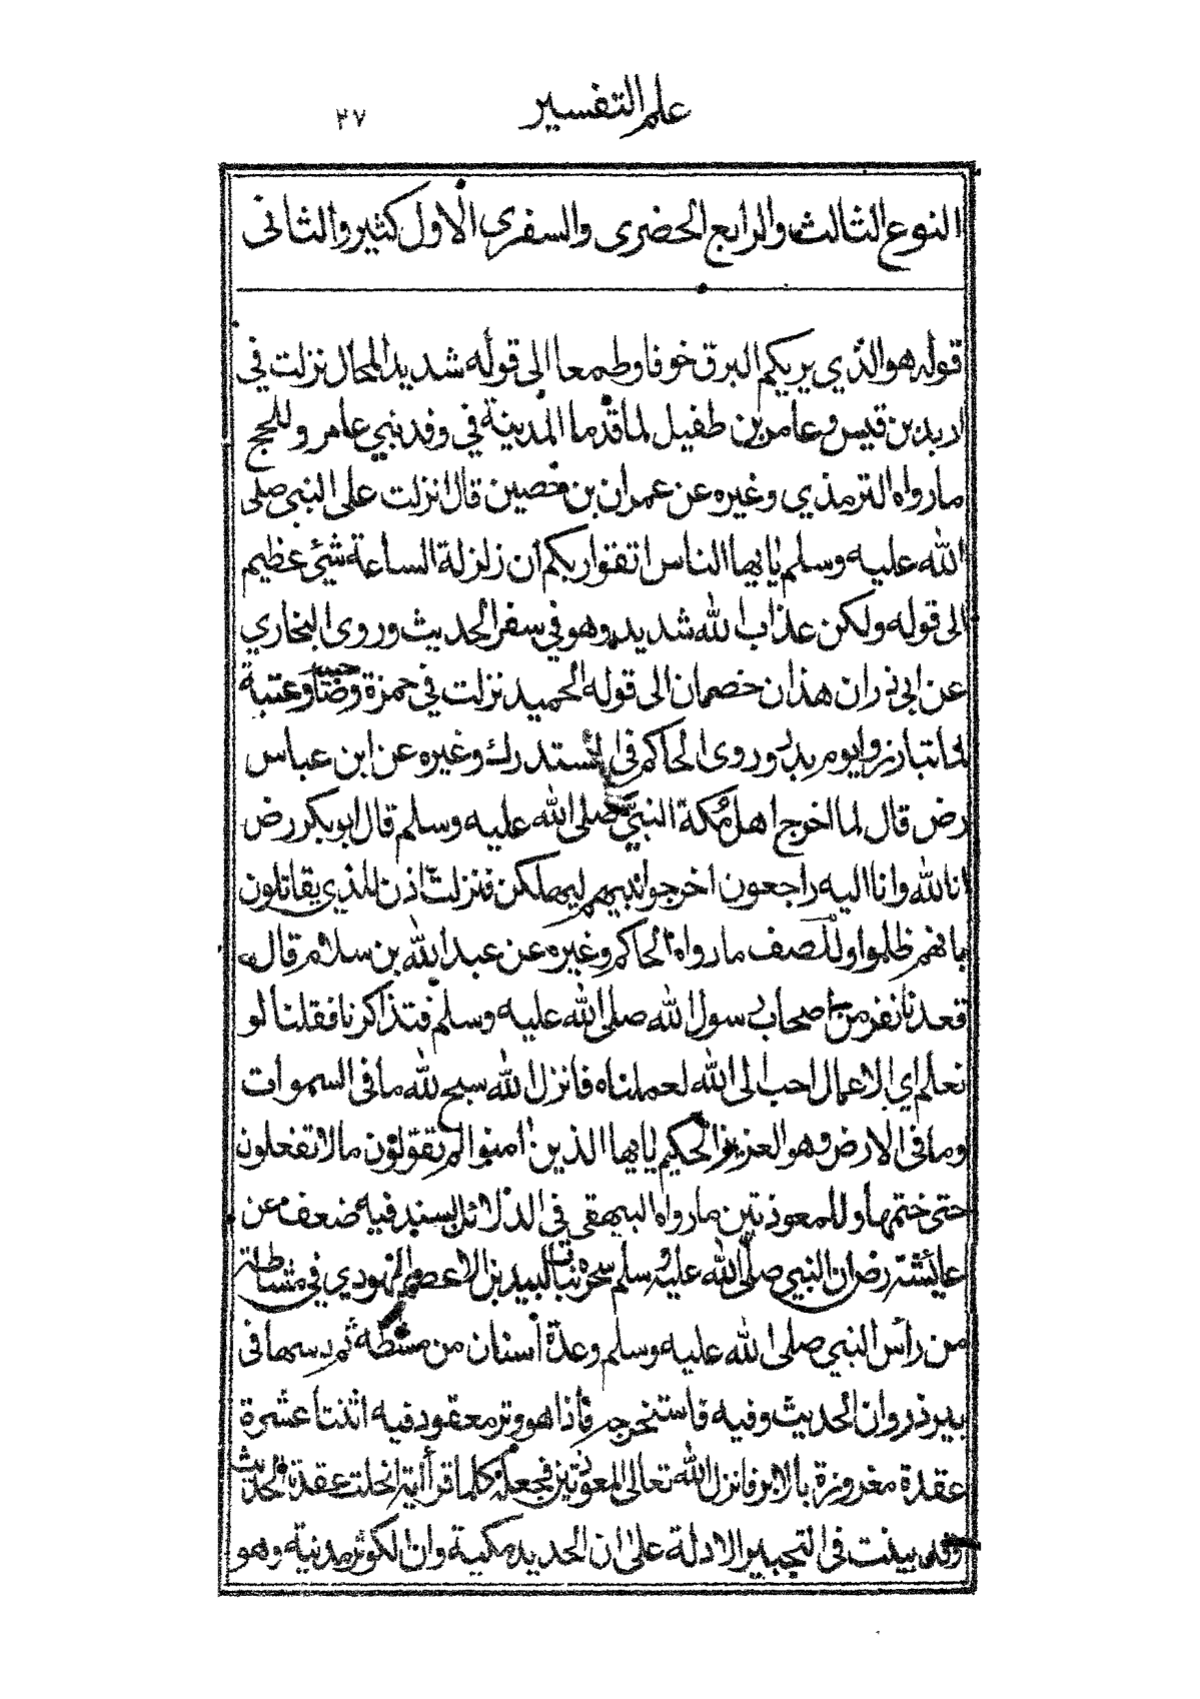 علم التفسير
٢٧
النوع الثالث والرابع الحضرى والسفرى الاول كثير والثانى
قوله هو الذي يريكم البرق خوفا وطمعا الى قوله شديد المحال نزلت في
اربد بن قيس وعامر بن طفيل لما قدما المدينة في وفد بني عامر وللحج
مارواه الترمذي وغيره عن عمران بن حصين قال انزلت على النبي صلى
الله عليه وسلم يايها الناس اتقوا ربكم ان زلزلة الساعة شئ عظيم
الى قوله ولكن عذاب الله شديد وهو في سفر الحديث وروى البخاري
عن ابي ذر ان هذان خصمان الى قوله الحميد نزلت في حمزة وصاحبيه وعتبة
لما تبارزوا يوم بدر وروى الحاكم في المستدرك وغيره عن ابن عباس
رض قال لما اخرج اهل مكة النبي صلى الله عليه وسلم قال ابو بكر رض
انا لله وانا اليه راجعون اخرجوا نبيهم ليهلكن فنزلت اذن للذي يقاتلون
بانهم ظلموا وللصف مارواه الحاكم وغيره عن عبد الله بن سلام قال
قعدنا نفر من اصحاب رسول الله صلى الله عليه وسلم فتذاكرنا فقلنا لو
نعلم اي الاعمال احب الى الله لعملناه فانزل الله سبح لله ما فى السموات
وما فى الارض وهو العزيز الحكيم يايها الذين امنوا لم تقولون مالا تفعلون
حتى ختمها وللمعوذتين مارواه البيهقى فى الدلائل بسند فيه ضعف عن
عائشة رض ان النبي صلى الله عليه وسلم سحره لبيد بن الاعصم اليهودي في مشاطة
من رأس النبي صلى الله عليه وسلم وعدة اسنان من مشطه ثم دسها فى
بير ذروان الحديث وفيه فاستخرجه فاذا هو وتر معقود فيه اثنتا عشرة
عقدة مغروزة بالابر فانزل الله تعالى المعوذتين فجعل كلما قرأ آية انحلت عقدة الحديث
وقد بينت فى التحبير الادلة على ان الحديد مكية وان الكوثر مدنية وهو